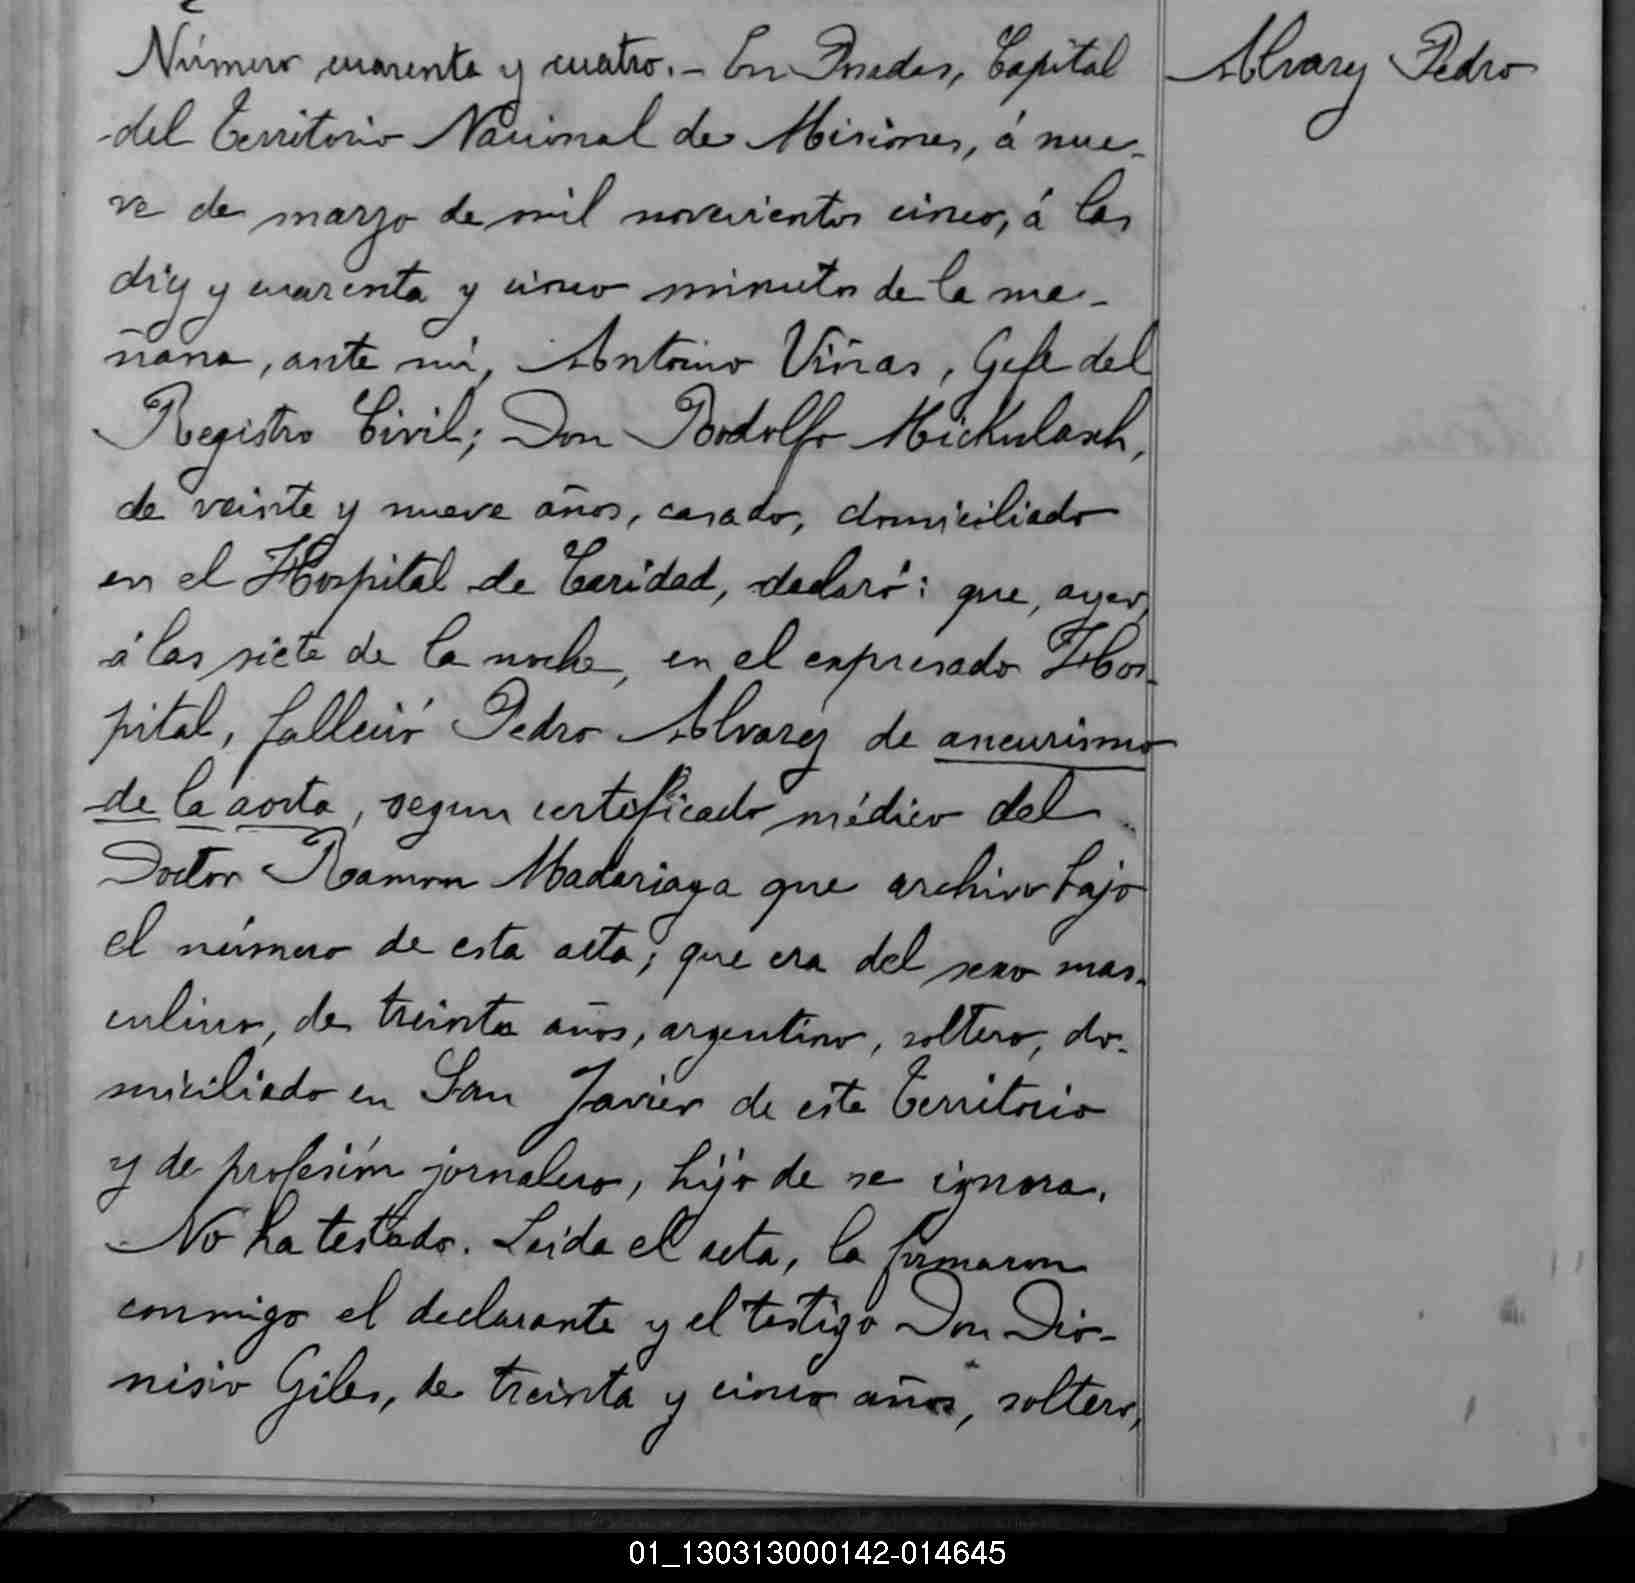 Número cuarenta y cuatro.- En Posadas, Capital
Alvarez Pedro
del Territorio Nacional de Misiones, á nue-
ve de marzo de mil novecientos cinco, á las
diez y cuarenta y cinco minutos de la ma-
ñana, ante mí, Antonio Viñas, Gefe del
Registro Civil; Don Rodolfo Mickulasch,
de veinte y nueve años, casado, domiciliado
en el Hospital de Caridad, declaró: que, ayer,
á las siete de la noche, en el expresado Hos-
pital, falleció Pedro Alvarez de aneurismo
de la aorta, segun certificado médico del
Doctor Ramon Madariaga que archivo bajo
el número de esta acta; que era del sexo mas-
culino, de treinta años, argentino, soltero, do-
miciliado en San Javier de este Territorio
y de profesión jornalero, hijo de se ignora.
No ha testado. Leida el acta, la firmaron
conmigo el declarante y el testigo Don Dio-
nisio Giles, de treinta y cinco años, soltero,
01_130313000142-014645